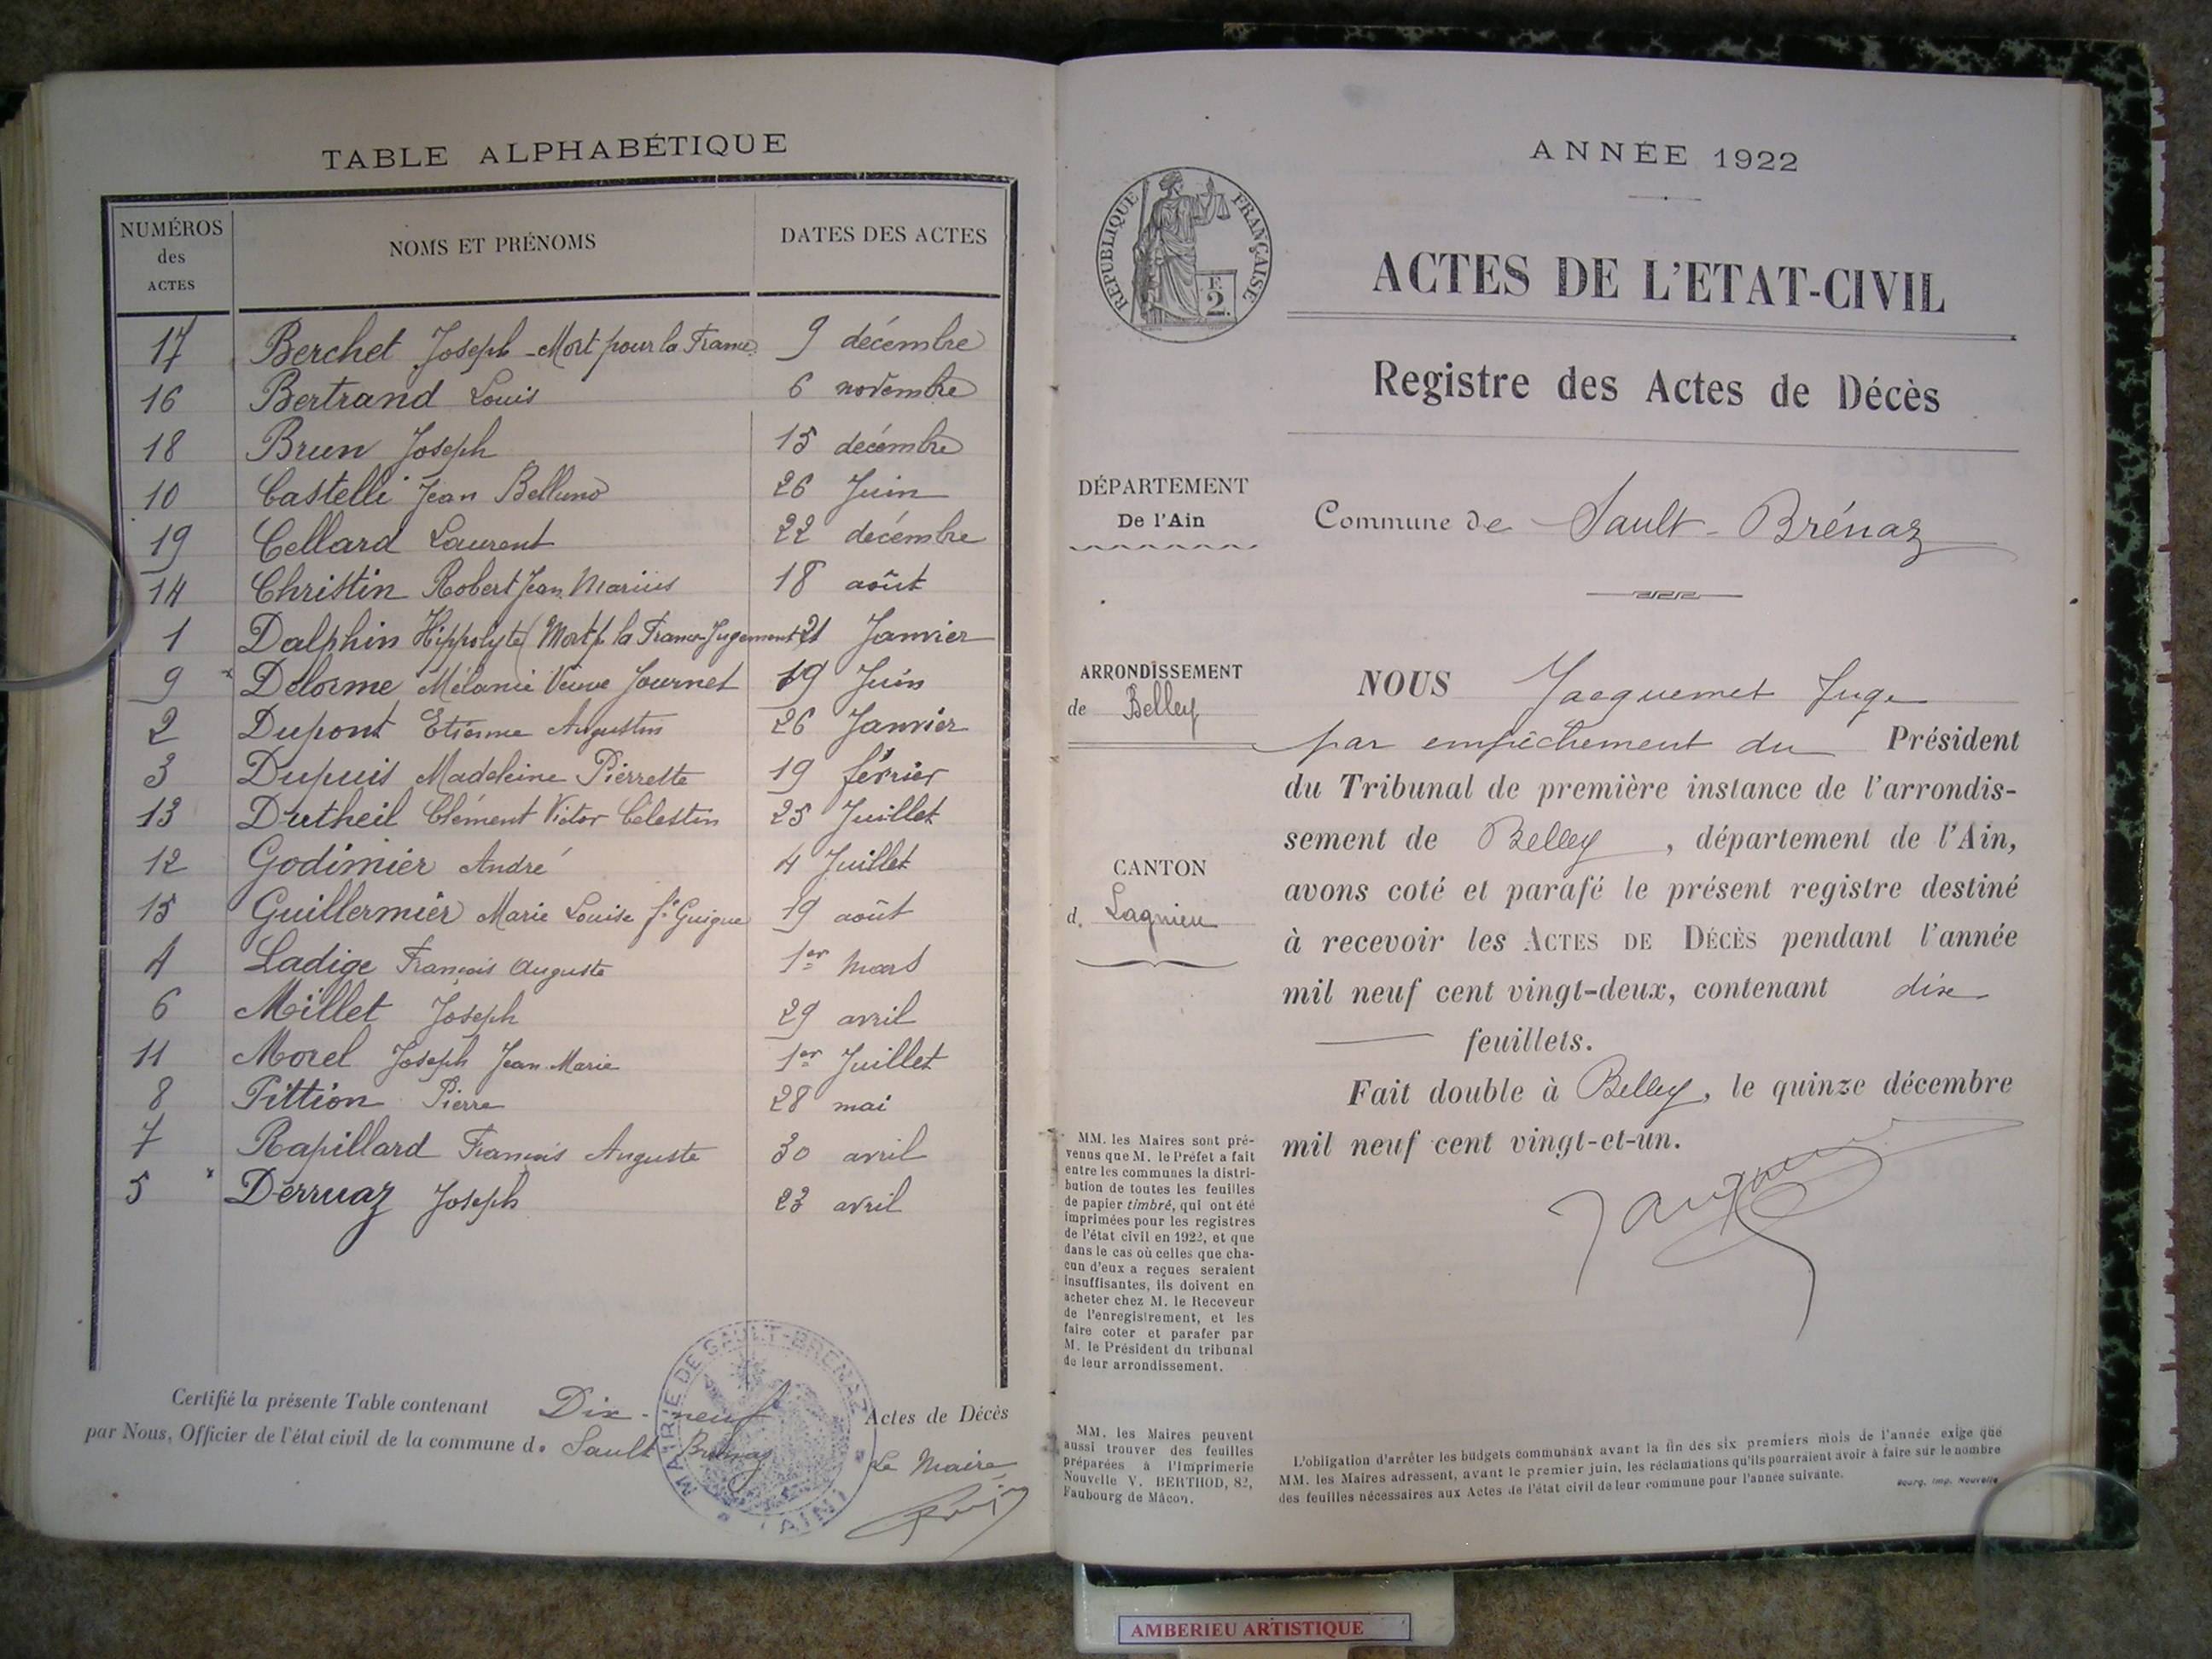 TABLE ALPHABÉTIQUE
NUMÉROS des ACTES NOMS ET PRÉNOMS DATES DES ACTES
17 Berchet Joseph - Mort pour la France 9 décembre
16 Bertrand Louis 6 novembre
18 Brun Joseph 15 décembre
10 Castelli Jean Belluno 26 Juin
19 Cellard Laurent 22 décembre
14 Christin Robert Jean Marius 18 août
1 Dalphin Hippolyte (Mort p. la France-Jugement 21 Janvier
9 Delorme Mélanie Veuve Journet 19 Juin
2 Dupont Etienne Augustin 26 Janvier
3 Dupuis Madeleine Pierrette 19 février
13 Dutheil Clément Victor Célestin 25 Juillet
12 Godimier André 4 Juillet
15 Guillermier Marie Louise fe Guigue 19 août
4 Ladige François Auguste 1er mars
6 Millet Joseph 29 avril
11 Morel Joseph Jean Marie 1er Juillet
8 Pittion Pierre 28 mai
7 Rapillard François Auguste 30 avril
5 Derruaz Joseph 23 avril
Certifié la présente Table contenant Dix-neuf Actes de Décès
par Nous, Officier de l'état civil de la commune d. Sault Brénaz
Le Maire
MAIRIE DE SAULT-BRENAZ
(AIN)
ANNÉE 1922
RÉPUBLIQUE FRANÇAISE
F.
2.
ACTES DE L'ETAT-CIVIL
Registre des Actes de Décès
DÉPARTEMENT
De l'Ain
Commune de Sault-Brénaz
ARRONDISSEMENT
de Belley
CANTON
d. Lagnieu
NOUS Jacquemet Juge
par empêchement du Président
du Tribunal de première instance de l'arrondis-
sement de Belley, département de l'Ain,
avons coté et parafé le présent registre destiné
à recevoir les ACTES DE DÉCÈS pendant l'année
mil neuf cent vingt-deux, contenant dix
feuillets.
Fait double à Belley, le quinze décembre
mil neuf cent vingt-et-un.
MM. les Maires sont pré-
venus que M. le Préfet a fait
entre les communes la distri-
bution de toutes les feuilles
de papier timbré, qui ont été
imprimées pour les registres
de l'état civil en 1922, et que
dans le cas où celles que cha-
cun d'eux a reçues seraient
insuffisantes, ils doivent en
acheter chez M. le Receveur
de l'enregistrement, et les
faire coter et parafer par
M. le Président du tribunal
de leur arrondissement.
MM. les Maires peuvent
aussi trouver des feuilles
préparées à l'Imprimerie
Nouvelle V. BERTHOD, 82,
Faubourg de Mâcon.
L'obligation d'arrêter les budgets communaux avant la fin des six premiers mois de l'année exige que
MM. les Maires adressent, avant le premier juin, les réclamations qu'ils pourraient avoir à faire sur le nombre
des feuilles nécessaires aux Actes de l'état civil de leur commune pour l'année suivante.
Bourg, Imp. Nouvelle
AMBERIEU ARTISTIQUE